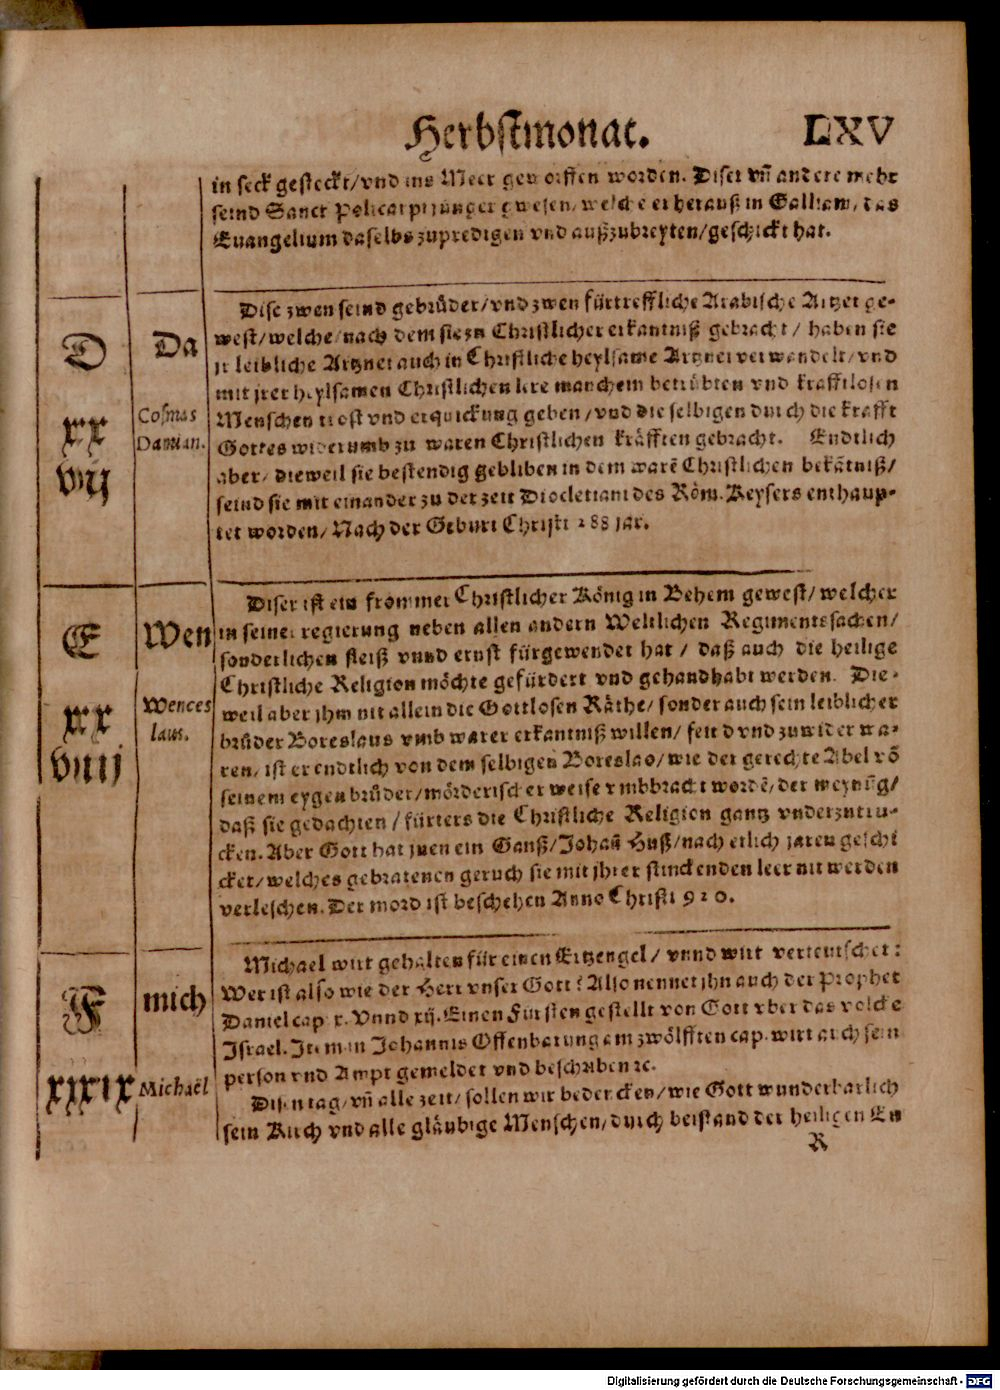 Herbstmonat. LXV
in seck gesteckt/vnd ins Meer geworffen worden. Diser vñ andere mehr
seind Sanct Policarpi jünger gwesen/welche er herauß in Galliam/das
Euangelium daselbs zupredigen vnd außzubreyten/geschickt hat.
D
xx
vij
Da
Cosmas
Damian.
Dise zwen seind gebrüder/vnd zwen fürtreffliche Arabische Artzet ge-
west/welche/nach dem sie zu Christlicher erkantniß gebracht/ haben sie
jr leibliche Artznei auch in Christliche heylsame Artznei verwandelt/vnd
mit jrer heylsamen Christlichen lere manchem betrübten vnd krafftlosen
Menschen trost vnd erquickung geben/vnd die selbigen durch die krafft
Gottes widerumb zu waren Christlichen kräfften gebracht. Endtlich
aber/dieweil sie bestendig gebliben in dem warē Christlichen bekātniß/
seind sie mit einander zu der zeit Diocletiani des Röm. Keysers enthaup-
tet worden/Nach der Geburt Christi 288 jar.
E
xx
viiij
Wen
Wences
laus.
Diser ist ein frommer Christlicher König in Behem gewest/welcher
in seiner regierung neben allen andern Weltlichen Regimentssachen/
sonderlichen fleiß vnnd ernst fürgewendet hat / daß auch die heilige
Christliche Religion möchte gefürdert vnd gehandhabt werden. Die-
weil aber jhm nit allein die Gottlosen Räthe/sonder auch sein leiblicher
brüder Boreslaus vmb warer erkantniß willen/feind vnd zuwider wa-
ren/ist er endtlich von dem selbigen Boreslao/wie der gerechte Abel vō
seinem eygen brüder/mörderischer weise vmbbracht wordē/der meynūg/
daß sie gedachten/fürters die Christliche Religion gantz vnderzutru-
cken. Aber Gott hat jnen ein Ganß/Johañ Huß/nach etlich jaren geschi
cket/welches gebratenen geruch sie mit jhrer stinckenden leer nit werden
verleschen. Der mord ist beschehen Anno Christi 920.
F
xxix
mich
Michaël
Michael wirt gehalten für einen Ertzengel/ vnnd wirt verteutschet:
Wer ist also wie der Herr vnser Gott? Also nennet jhn auch der Prophet
Daniel cap. x. Vnnd xij. Einen Fürsten gestellt von Gott vber das volcke
Israel. Item in Johannis Offenbarung am zwölfften cap. wirt auch sein
person vnd Ampt gemeldet vnd beschriben ꝛc.
Disen tag/vñ alle zeit/sollen wir bedencken/wie Gott wunderbarlich
sein Kirch vnd alle gläubige Menschen/durch beistand der heiligen En
R
Digitalisierung gefördert durch die Deutsche Forschungsgemeinschaft - DFG